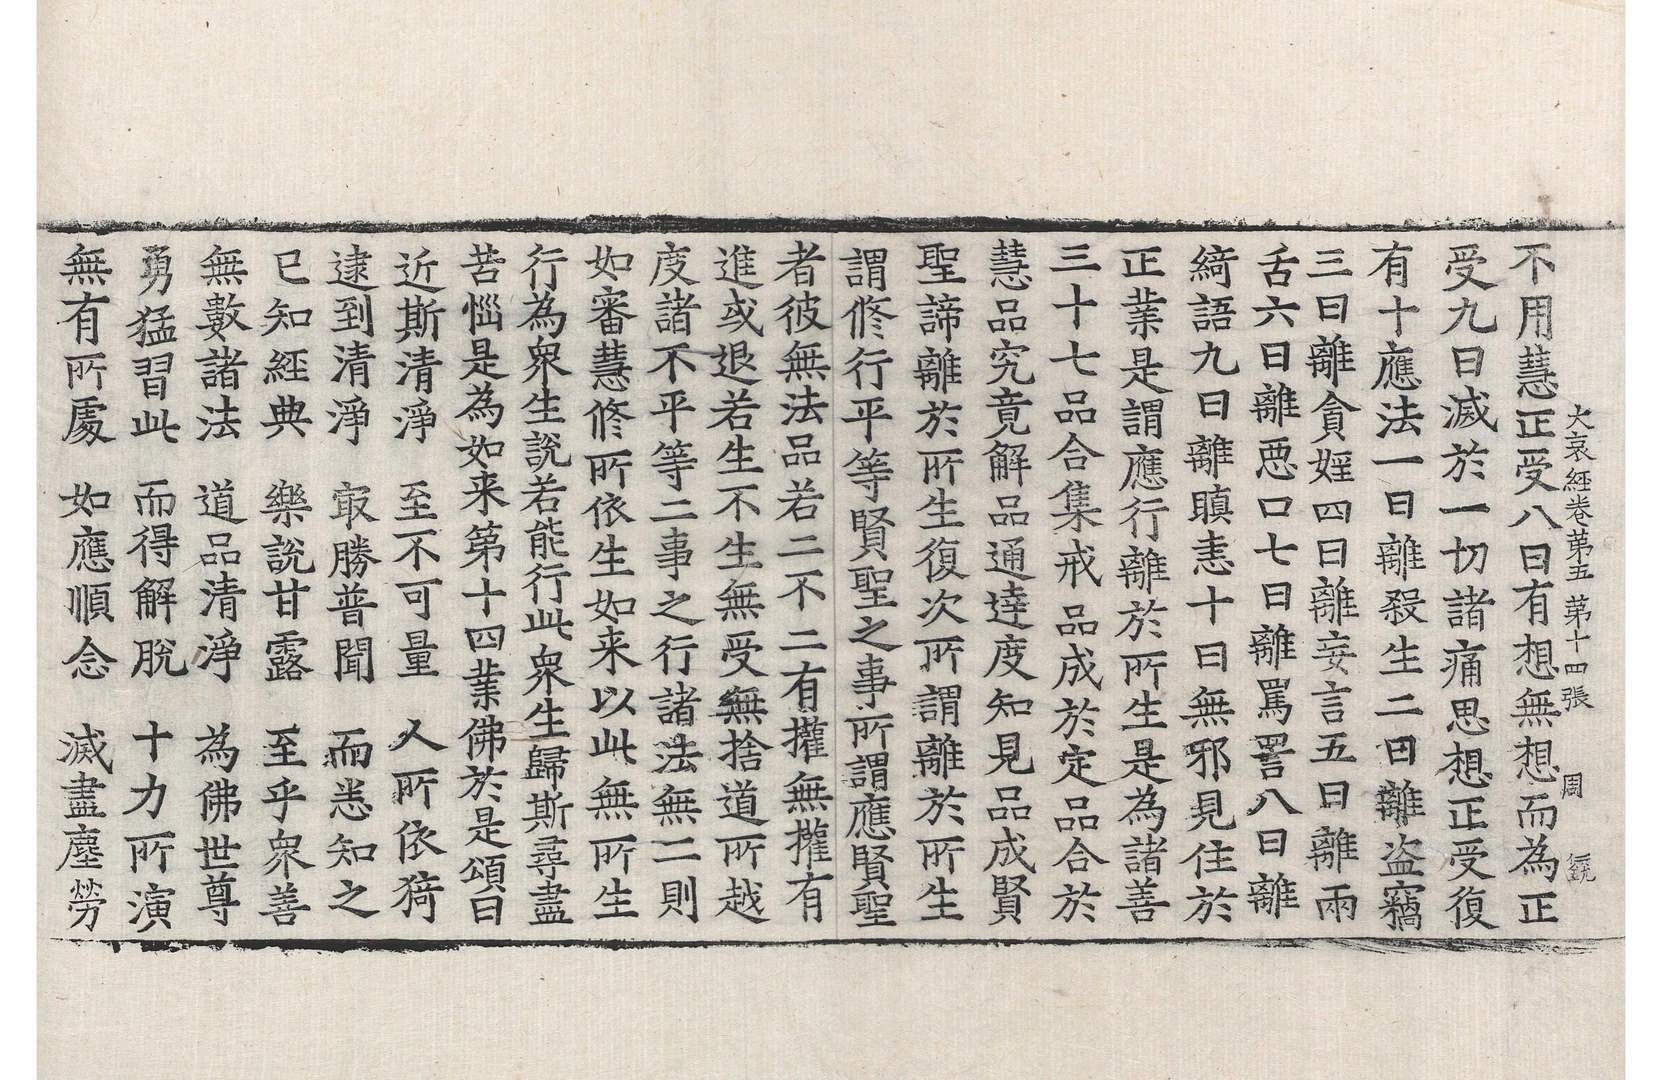 大哀經卷第五 第十四張 周
不用慧正受八曰有想無想而為正
受九曰滅於一切諸痛思想正受復
有十應法一曰離殺生二曰離盗竊
三曰離貪婬四曰離妄言五曰離兩
舌六曰離惡口七曰離罵詈八曰離
綺語九曰離瞋恚十曰無邪見住於
正業是謂應行離於所生是為諸善
三十七品合集戒品成於定品合於
慧品究竟解品通達度知見品成賢
聖諦離於所生復次所謂離於所生
謂修行平等賢聖之事所謂應賢聖
者彼無法品若二不二有攉無攉有
進或退若生不生無受無捨道所越
度諸不平等二事之行諸法無二則
如審慧修所依生如来以此無所生
行為衆生説若能行此衆生歸斯尋盡
苦惱是為如来第十四業佛於是頌曰
近斯清淨 至不可量 人所依猗
逮到清淨 㝡勝普聞 而悉知之
已知經典 樂説甘露 至乎衆善
無數諸法 道品清淨 為佛世尊
勇猛習此 而得解脫 十力所演
無有所處 如應順念 滅盡塵勞